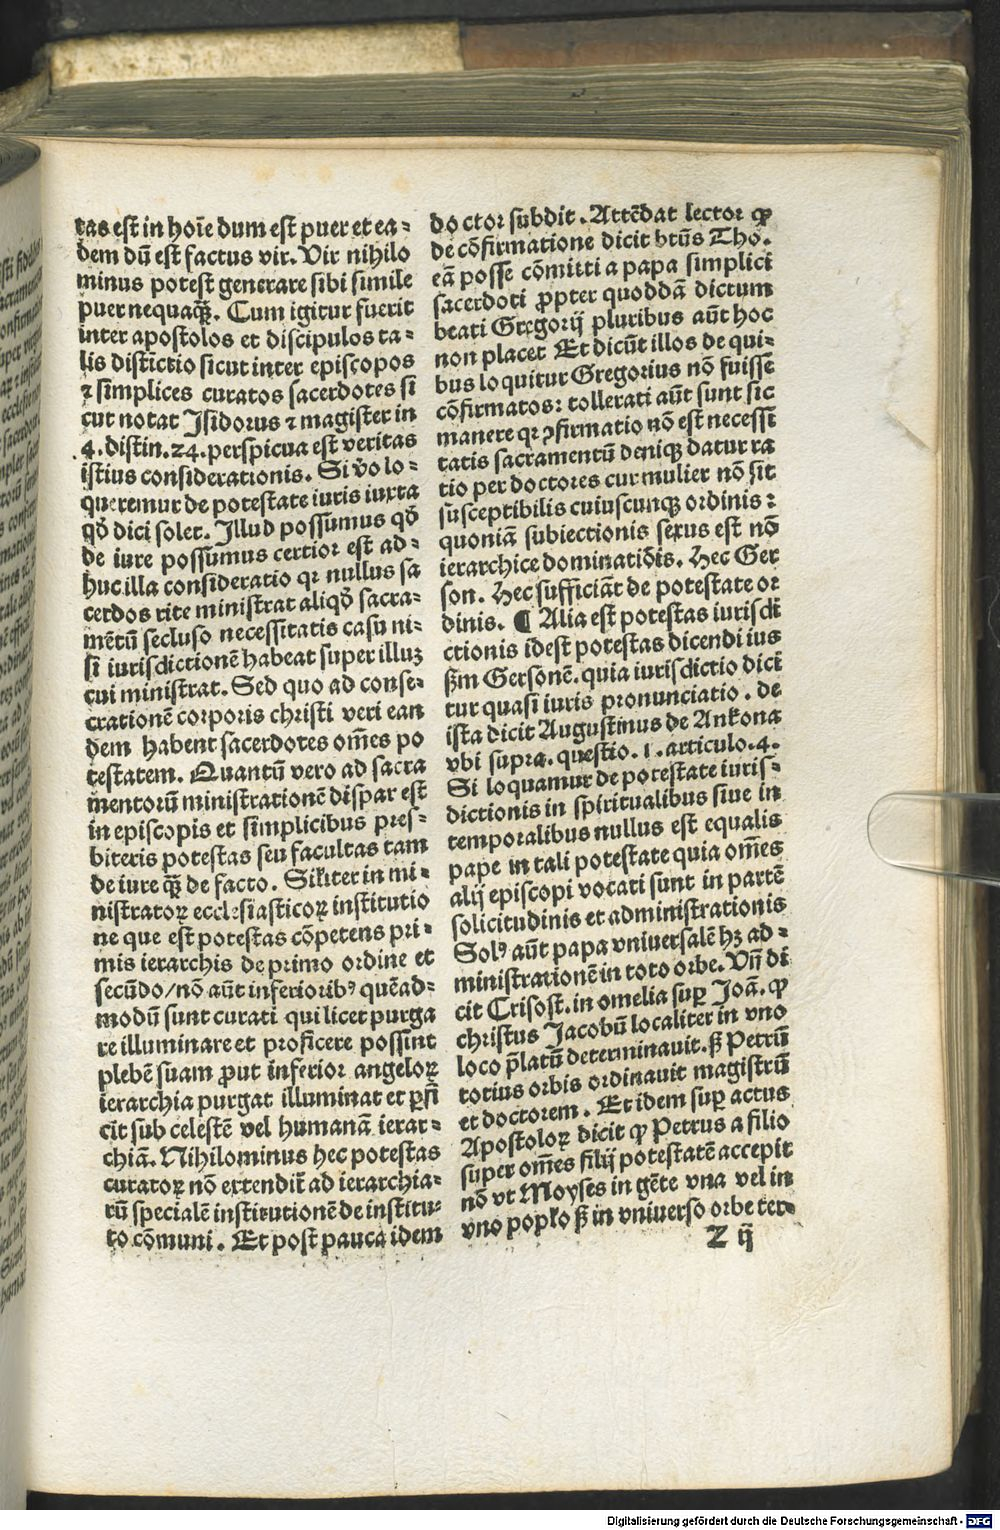 tas est in hoīe dum est puer et ea⸗
dem dū est factus vir. Vir nihilo
minus potest generare sibi simile
puer nequaqꝫ̄. Cum igitur fuerit
inter apostolos et discipulos ta⸗
lis distīctio sicut inter episcopos
⁊ simplices curatos sacerdotes si
cut notat Isidorus ⁊ magister in
.4. distin. 24. perspicua est veritas
istius considerationis. Si v̄o lo⸗
queremur de potestate iuris iuxta
qd̄ dici solet. Illud possumus qd̄
de iure possumus certior est ad⸗
huc illa consideratio qꝛ nullus sa
cerdos rite ministrat aliqd̄ sacra⸗
mētū secluso necessitatis casu ni⸗
si iurisdictionē habeat super illuꝫ
cui ministrat. Sed quo ad conse⸗
crationē corporis christi veri ean
dem habent sacerdotes om̄es po
testatem. Quantū vero ad sacra
mentorū ministrationē dispar est
in episcopis et simplicibus pres⸗
biteris potestas seu facultas tam
de iure qꝫ̄ de facto. Sikiter in mi⸗
nistratoꝝ ecclesiasticoꝝ institutio
ne que est potestas cōpetens pri⸗
mis ierarchis de primo ordine et
secūdo/nō aūt inferioribꝰ quēad⸗
modū sunt curati qui licet purga
re illuminare et proficere possint
plebē suam ꝓut inferior angeloꝝ
ierarchia purgat illuminat et ꝑfi
cit sub celestē vel humanā ierar⸗
chiā. Nihilominus hec potestas
curatoꝝ nō extendit̄ ad ierarchia⸗
rū specialē institutionē de institu⸗
to cōmuni. Et post pauca idem
doctor subdit. Attēdat lector ꝙ
de cōfirmatione dicit btūs Tho.
eā posse cōmitti a papa simplici
sacerdoti ꝓpter quoddā dictum
beati Gregorij pluribus aūt hoc
non placet Et dicūt illos de qui⸗
bus loquitur Gregorius nō fuisse
cōfirmatos: tollerati aūt sunt sic
manere qꝛ ꝯfirmatio nō est necessi
tatis sacramentū deniqꝫ datur ra
tio per doctores cur mulier nō sit
susceptibilis cuiuscunqꝫ ordinis:
quoniā subiectionis sexus est nō
ierarchice dominatiōis. Hec Ger
son. Hec sufficiāt de potestate or
dinis. ¶ Alia est potestas iurisdi
ctionis idest potestas dicendi ius
ẜm Gersonē. quia iurisdictio dici
tur quasi iuris pronunciatio. de
ista dicit Augustinus de Ankona
vbi supra. questio. 1. articulo. 4.
Si loquamur de potestate iuris⸗
dictionis in spiritualibus siue in
temporalibus nullus est equalis
pape in tali potestate quia om̄es
alij episcopi vocati sunt in partē
solicitudinis et administrationis
Solꝰ aūt papa vniuersalē hꝫ ad⸗
ministrationē in toto orbe. Vn̄ di
cit Crisost. in omelia suꝑ Joā. ꝙ
christus Jacobū localiter in vno
loco p̄latū determinauit. ẜ Petrū
totius orbis ordinauit magistrū
et doctorem. Et idem suꝑ actus
Apostoloꝝ dicit ꝙ Petrus a filio
super om̄es filij potestatē accepit
nō vt Moyses in gēte vna vel in
vno popko ẜ in vniuerso orbe ter⸗
Z ij
Digitalisierung gefördert durch die Deutsche Forschungsgemeinschaft - DFG